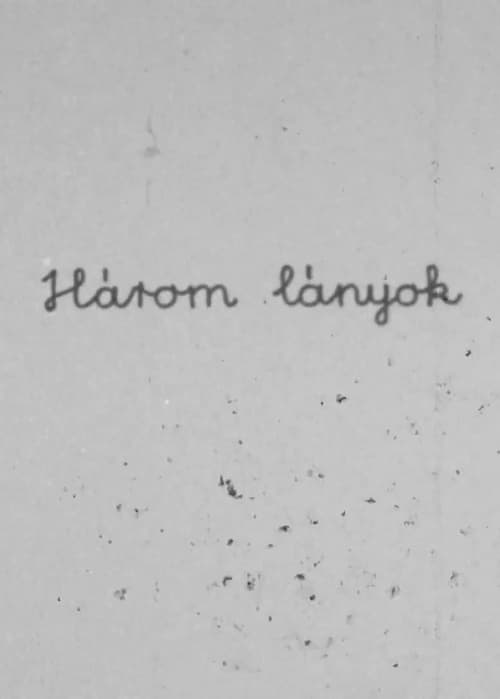 Három lányok